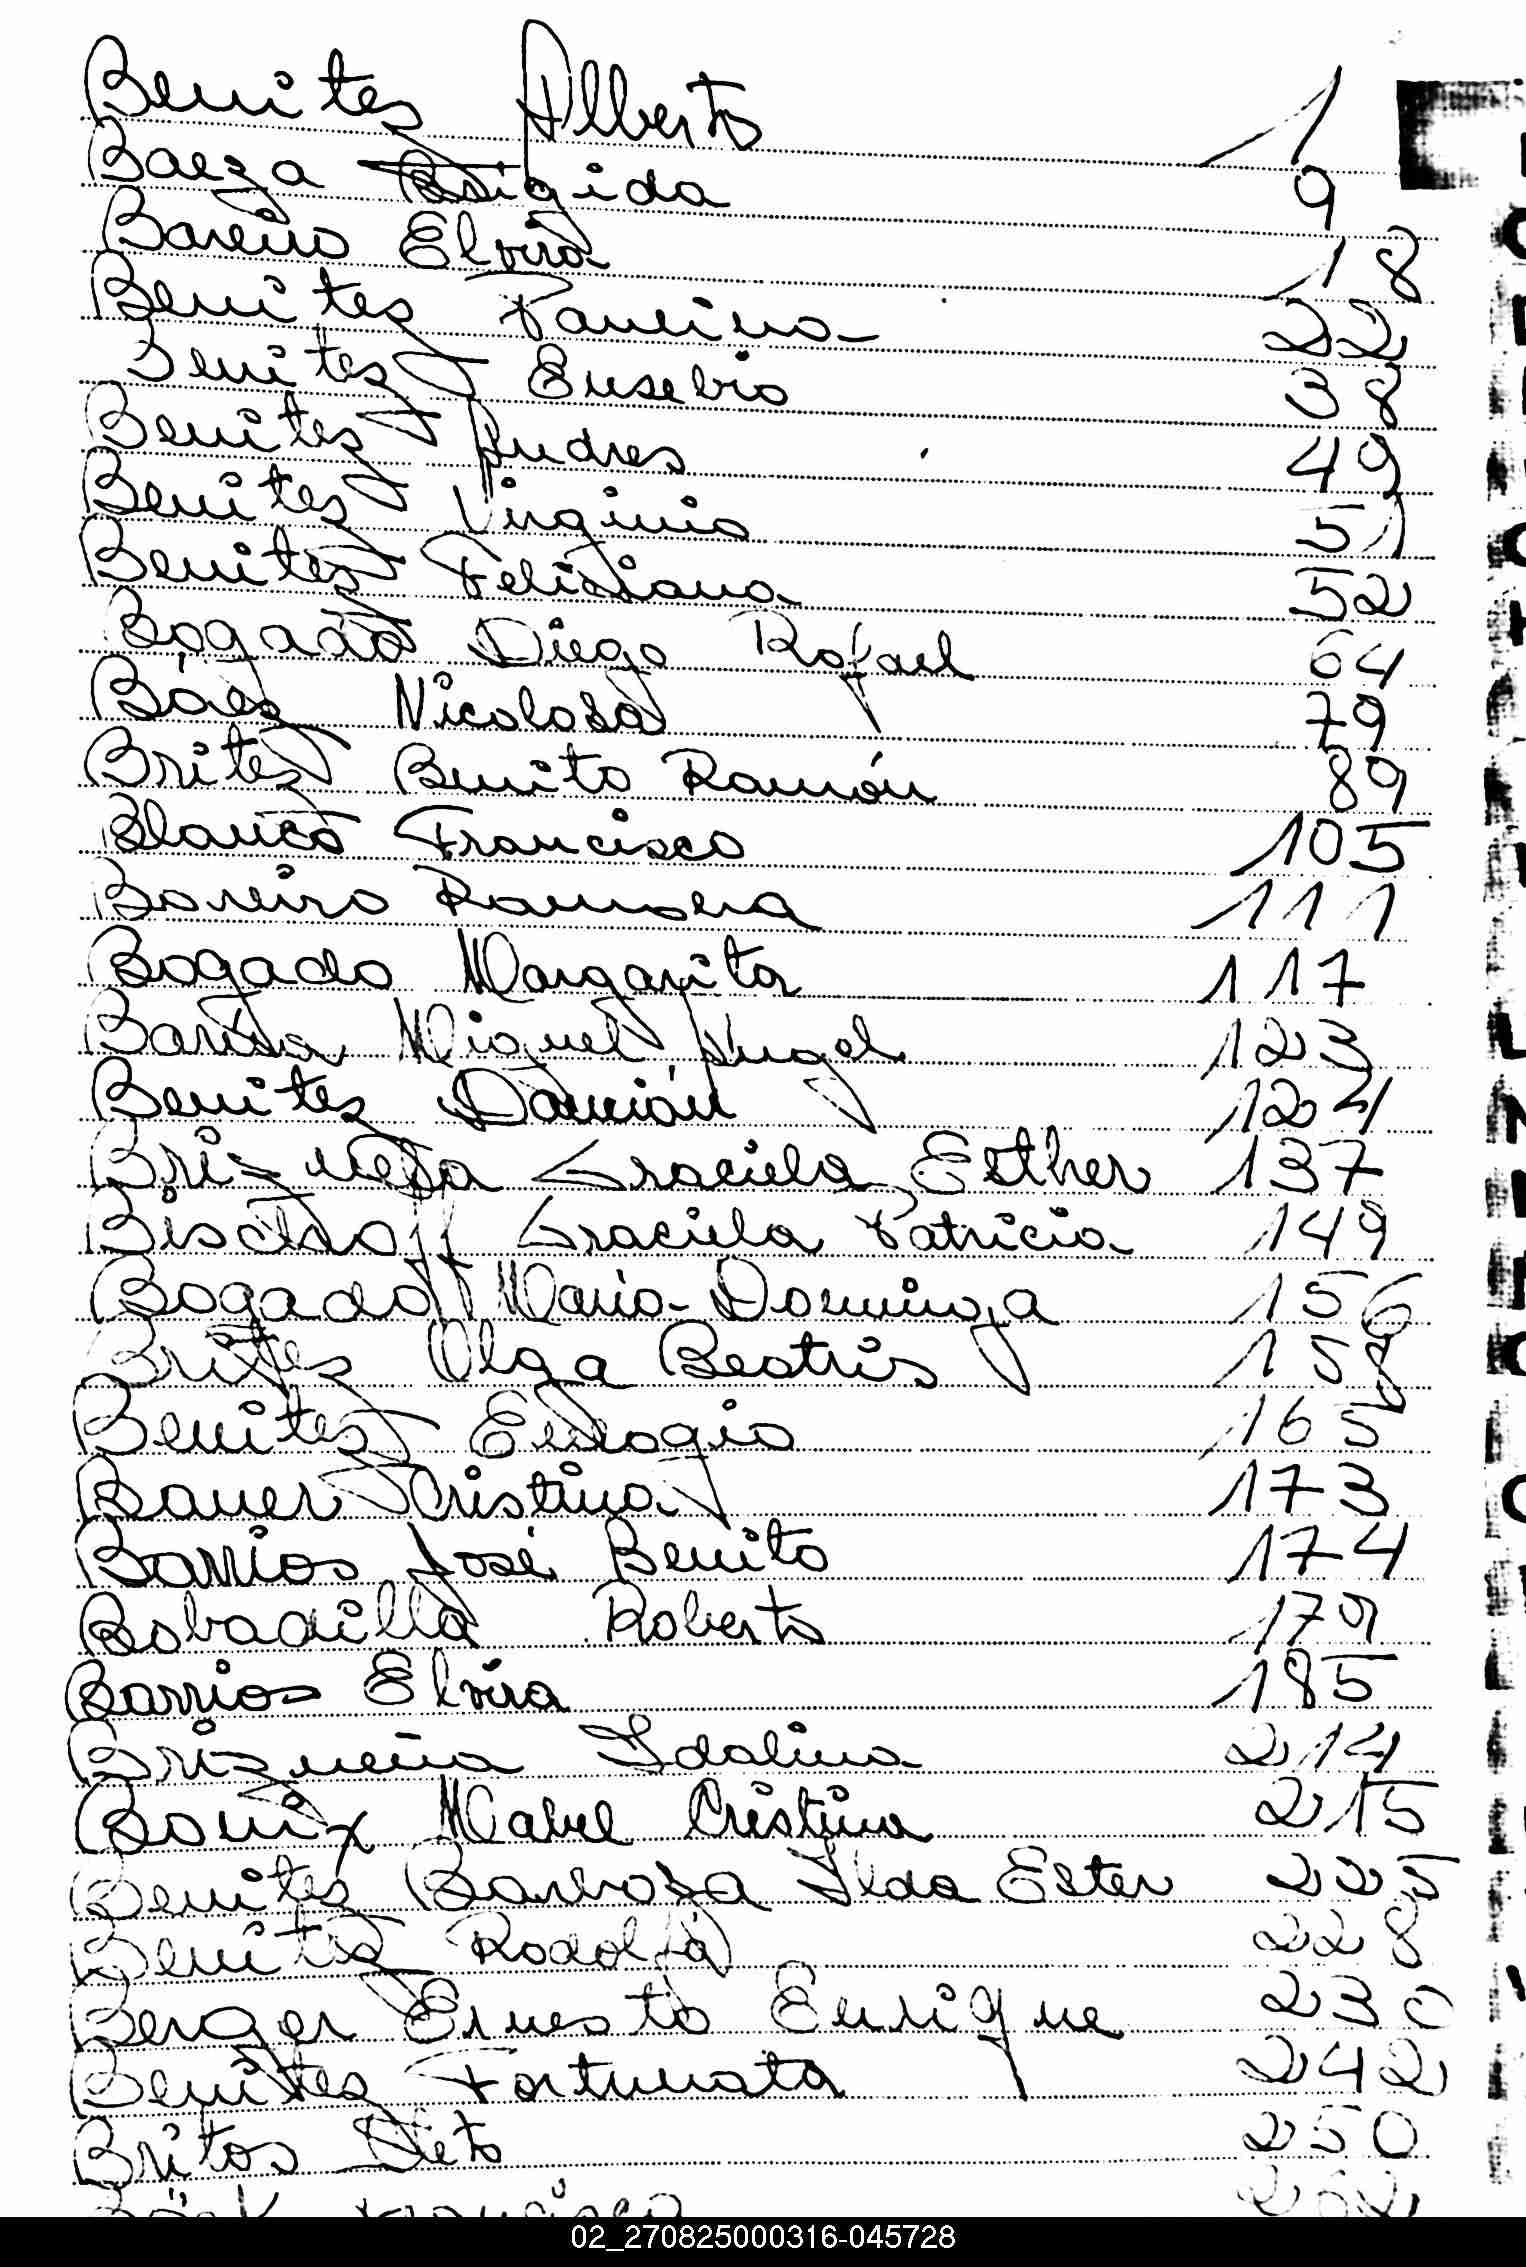 Benites Alberto 1
Baeza Brigida 9
Bareiro Elvira 18
Benites Paulina 22
Benites Eusebio 38
Benites Andres 49
Benites Virginia 51
Benites Feliciana 52
Bogado Diego Rafael 64
Báez Nicolasa 79
Brites Benito Ramón 89
Blanco Francisco 105
Bareiro Ramona 111
Bogado Margarita 117
Miguel Angel 123
Benites Damián 124
Brizuela Graciela Esther 137
Bischoff Graciela Patricia 149
Bogado Maria Dominga 156
Brites Olga Beatris 158
Benites Eulogio 165
Bauer Cristina 173
Barrios José Benito 174
Bobadilla Roberto 179
Barrios Elvira 185
Brizueña Idalina 214
Bonix Mabel Cristina 215
Benites Barboza Ilda Ester 225
Benites Rodolfo 228
Berger Ernesto Enrique 230
Benites Fortunata 242
Britos 250
Francisco
02_270825000316-045728